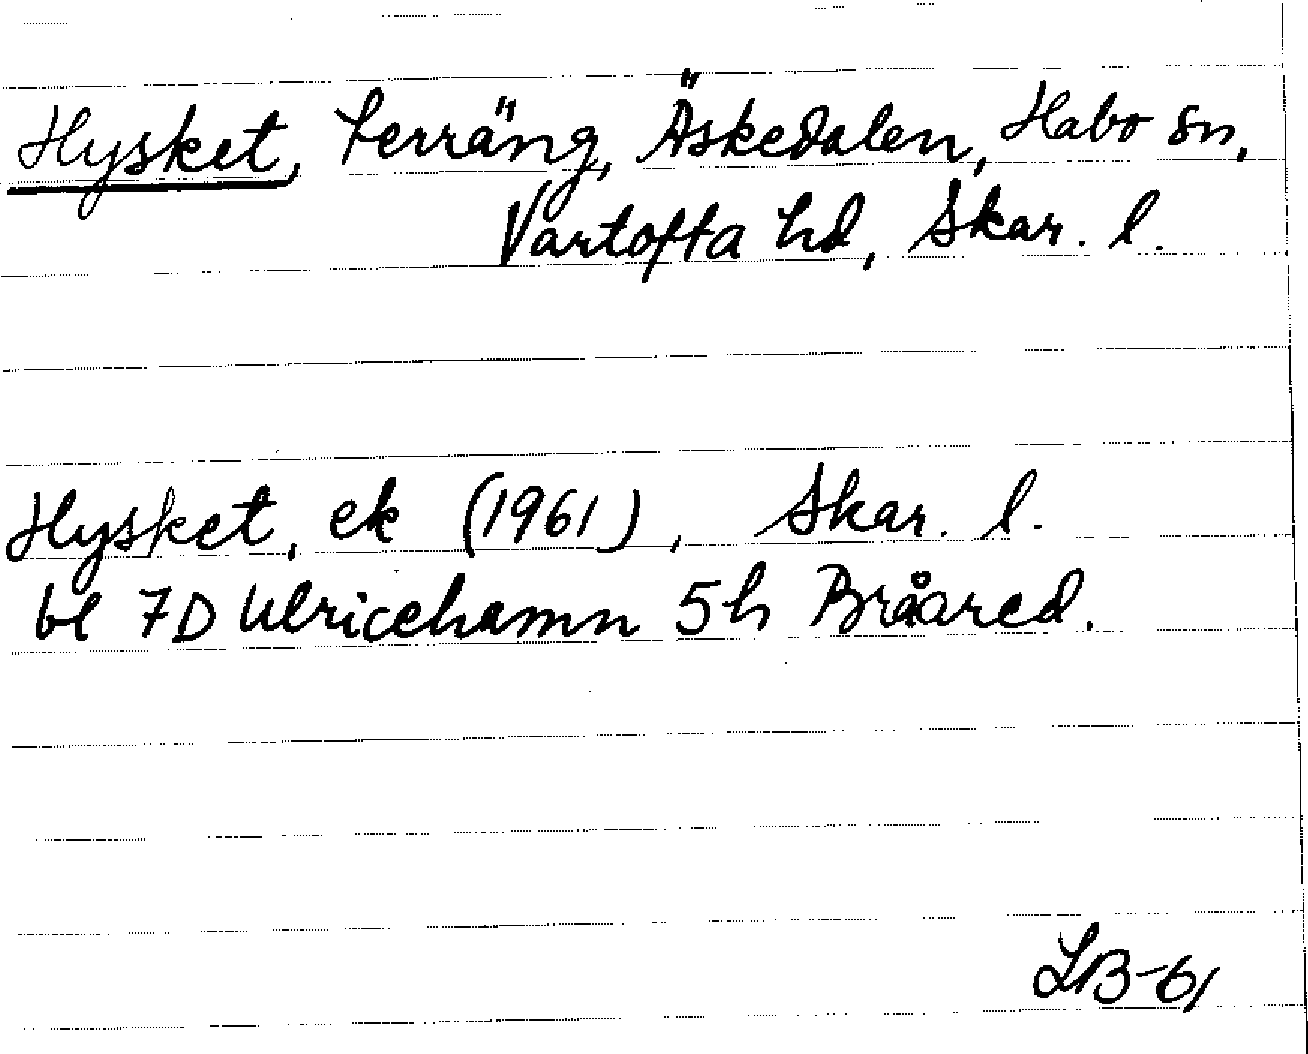 Hysket, terräng, Äskedalen, Habo sn,
Vartofta hd, Skar. l.
Hysket, ek (1961), Skar. l.
bl 7D Ulricehamn 5h Bråared.
LB-61